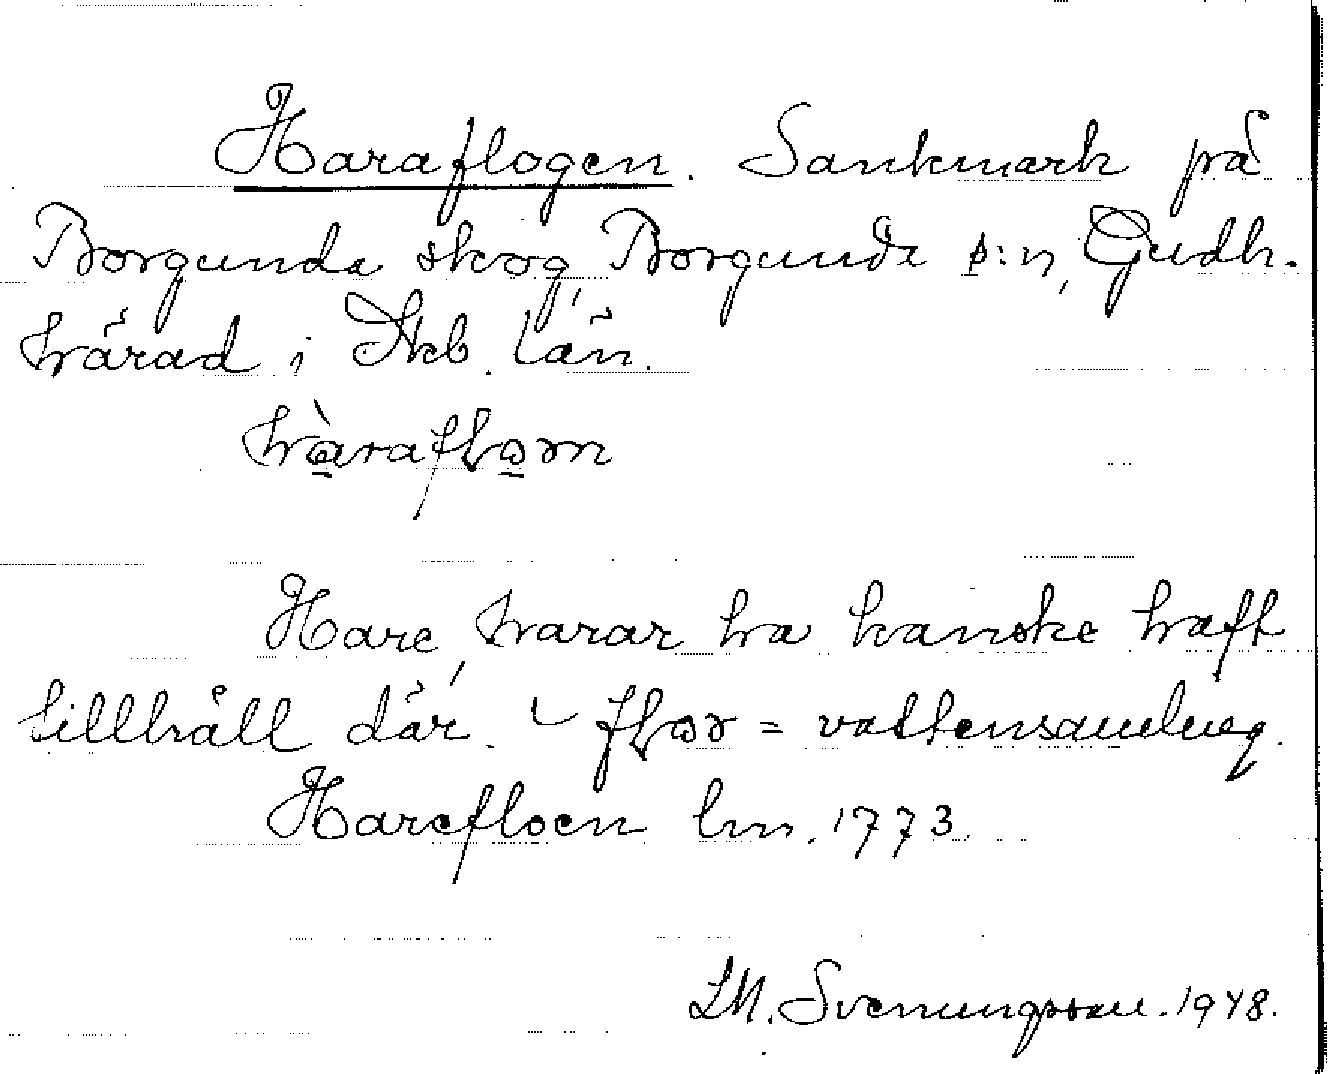 Haraflogen. Sankmark på
Borgunda skog, Borgunda s:n, Gudh.
härad i Skb. län.
hàraflɷrn
Hare, harar ha kanske haft
tillhåll där. flɷr = vattensamling.
Harefloen lm. 1773.
LM. Svenungsson. 1948.